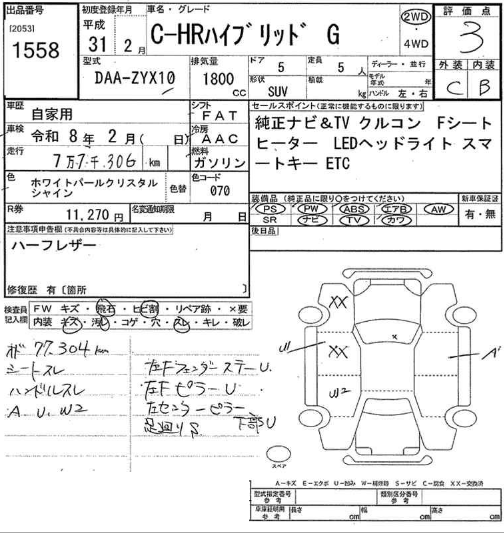 出品番号
[2053]
1558
初度登録年月
平成
31年 2月
車名・グレード
C-HRハイブリッド G
2WD
・
4WD
評価点
3
外装 内装
C B
型式
DAA-ZYX10
排気量
1800
cc
ドア
5
定員
5人
形状
SUV
積載
kg
ディーラー・並行
モデル年式 年
ハンドル 左・右
車歴
自家用
シフト
FAT
車検
令和 8年 2月( 日)
冷房
AAC
走行
7万7千306 km
燃料
ガソリン
色
ホワイトパールクリスタル
シャイン
色替
色コード
070
R券
11,270円
名変通知期限
月 日
注意事項申告欄(不具合内容等は具体的に記入して下さい)
ハーフレザー
修復歴 有[箇所 ]
セールスポイント(正常に機能するものに限ります)
純正ナビ&TV クルコン Fシート
ヒーター LEDヘッドライト スマ
ートキー ETC
装備品(純正品に限り○をつけてください)
PS PW ABS エアB AW
SR ナビ TV カワ
新車保証書
有・無
後日品
検査員
記入欄
FW キズ・飛石・ヒビ割・リペア跡・×要
内装 キズ・汚レ・コゲ・穴・スレ・キレ・破レ
メ 77,304km
シートスレ
ハンドルスレ
A、U、W2
左Fフェンダーステー U.
左F ピラー U
左センターピラー
下部SU
足廻りS
XX
XX
U
W2
×
A
スペア
A-キズ E-エクボ U-凹み W-補修跡 S-サビ C-腐食 XX-交換済
型式指定番号
参考
類別区分番号
車庫証明用
参考
長さ cm
幅 cm
高さ cm